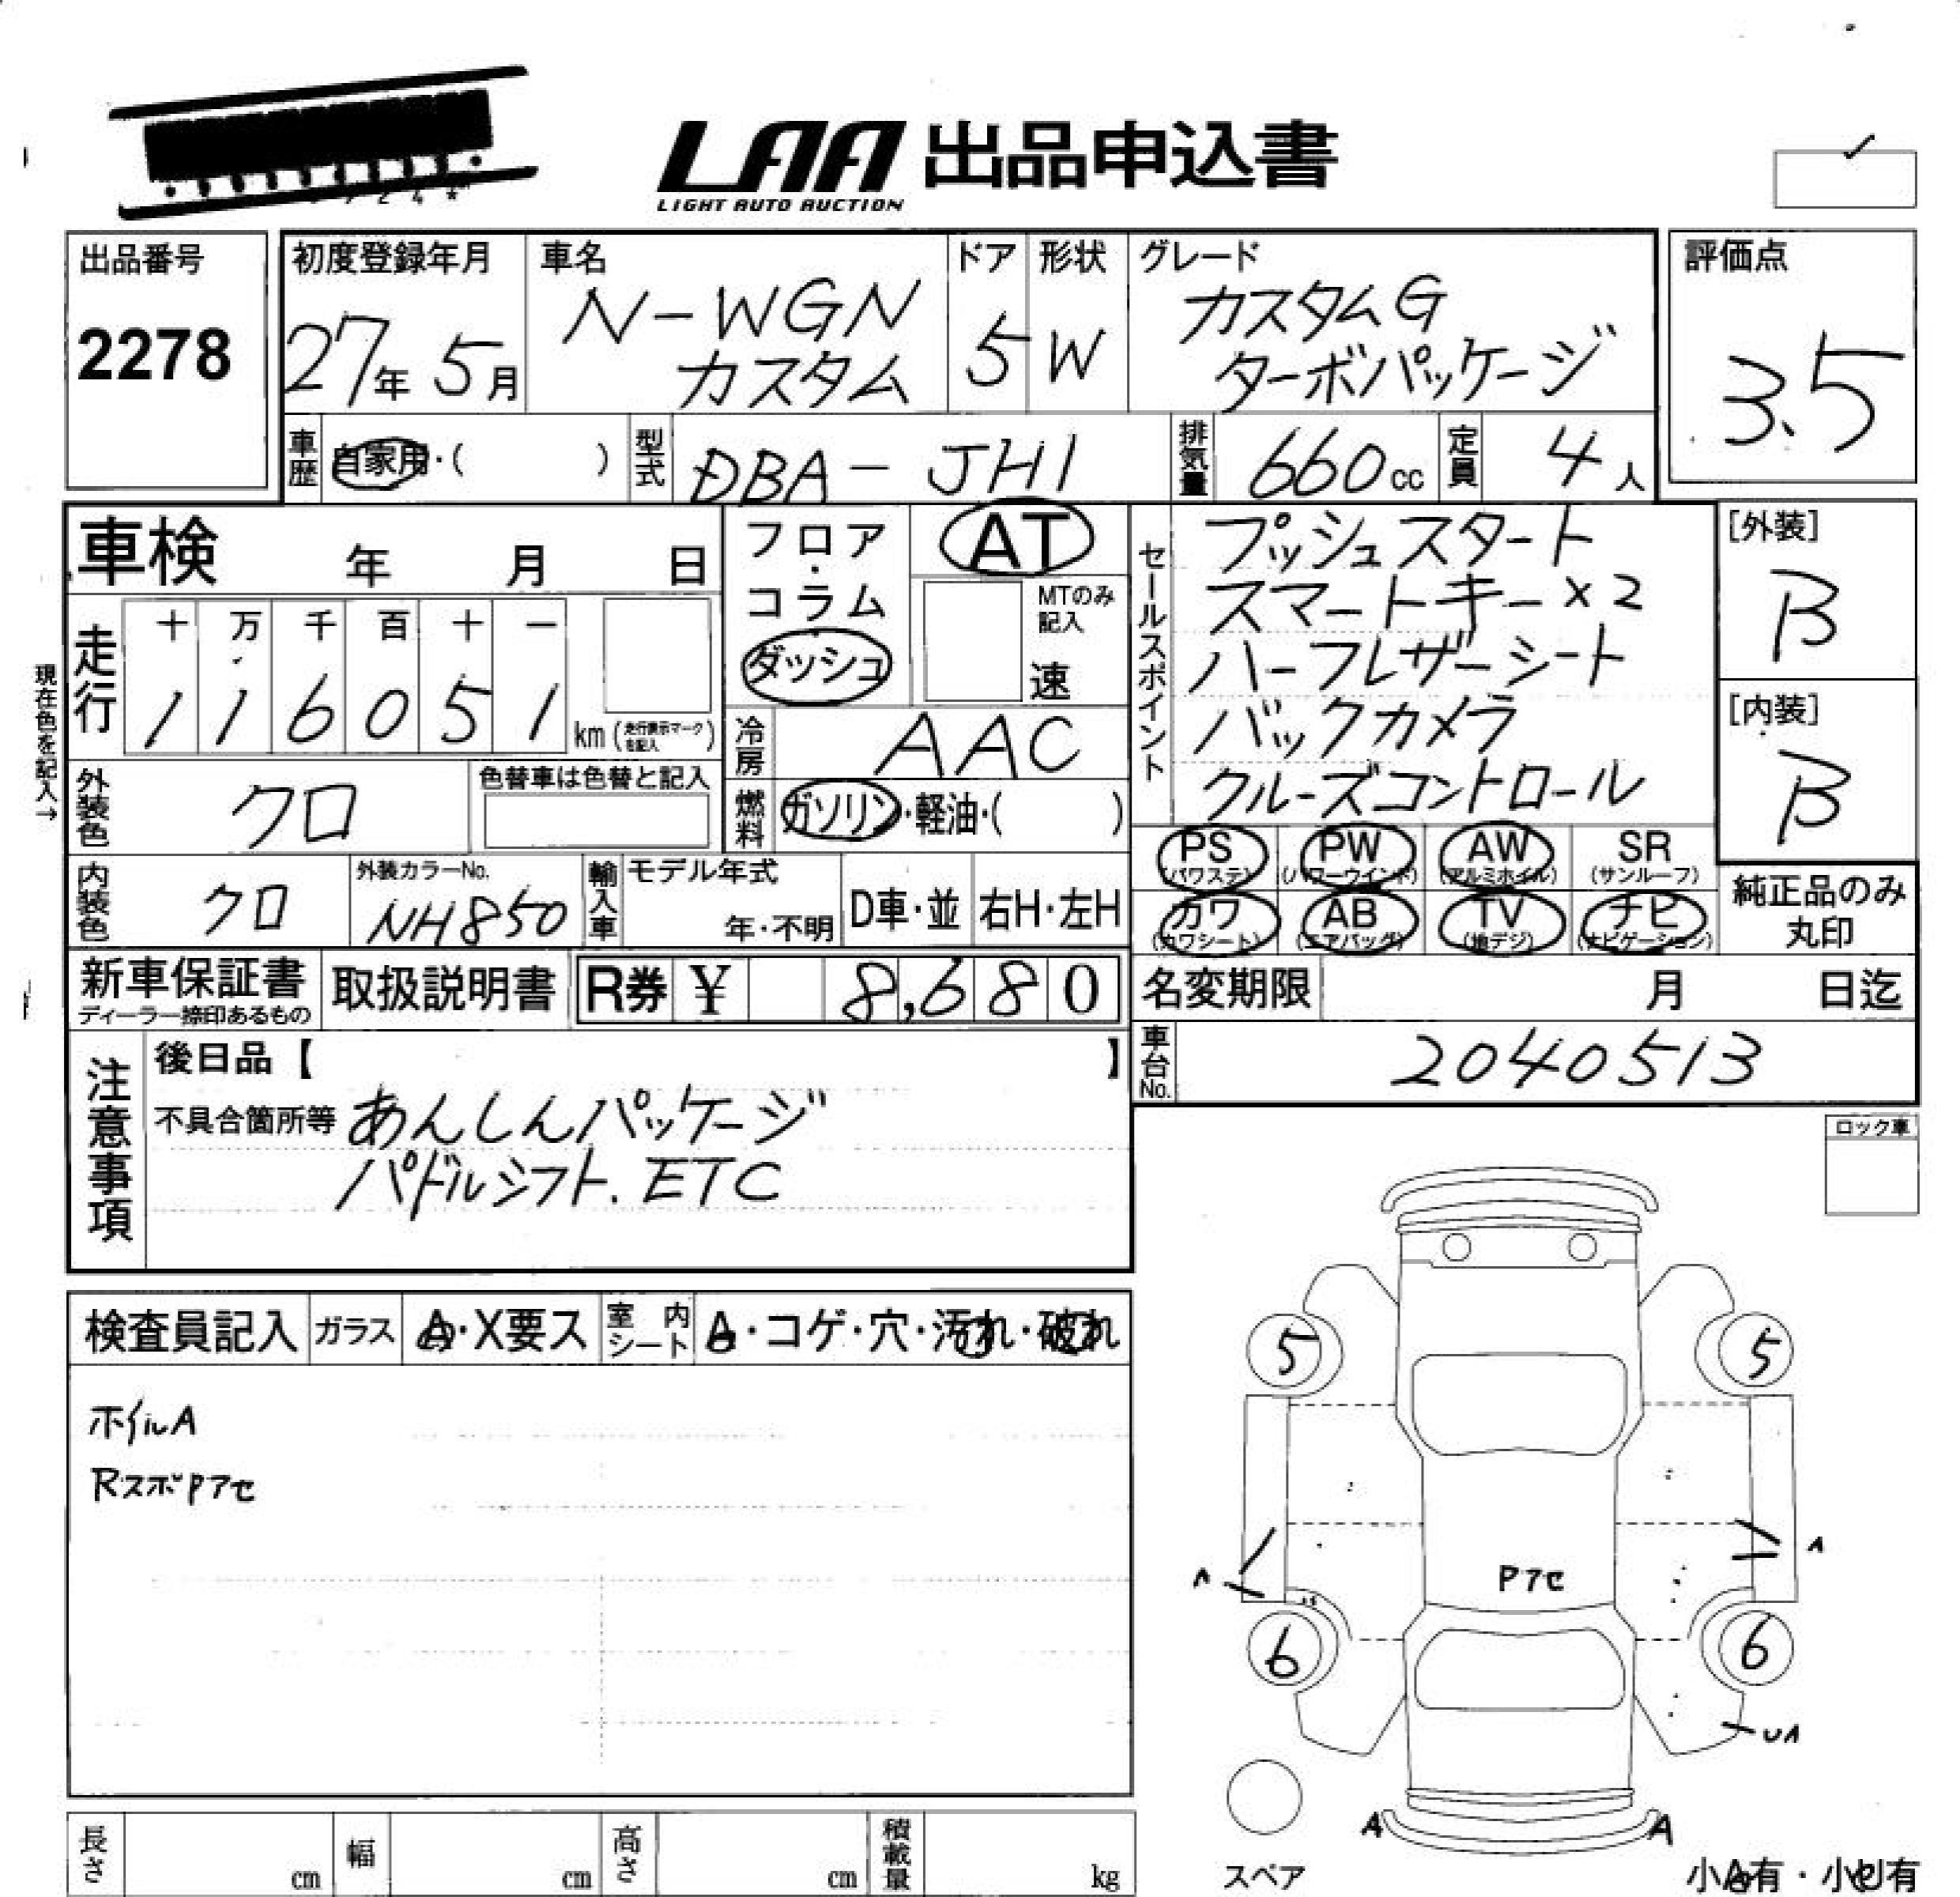 LAA 出品申込書
LIGHT AUTO AUCTION
出品番号
2278
初度登録年月
27年 5月
車名
N-WGN
カスタム
ドア
5
形状
W
グレード
カスタムG
ターボパッケージ
評価点
3.5
車歴 自家用・( )
型式 DBA-JH1
排気量 660cc
定員 4人
車検 年 月 日
フロア・コラム
ダッシュ
AT
MTのみ記入
速
走行
十 万 千 百 十 一
1 1 6 0 5 1 km (走行表示マークを記入)
現在色を記入→
冷房 AAC
外装色 クロ
色替車は色替と記入
燃料 ガソリン・軽油・( )
内装色 クロ
外装カラーNo.
NH850
輸入車
モデル年式
年・不明
D車・並
右H・左H
セールスポイント
プッシュスタート
スマートキー×2
ハーフレザーシート
バックカメラ
クルーズコントロール
[外装]
B
[内装]
B
PS (パワステ)
PW (パワーウインド)
AW (アルミホイル)
SR (サンルーフ)
カワ (カワシート)
AB (エアバッグ)
TV (地デジ)
ナビ (ナビゲーション)
純正品のみ
丸印
新車保証書
ディーラー捺印あるもの
取扱説明書
R券 ¥ 8,680
名変期限 月 日迄
車台No. 2040513
注意事項
後日品【 】
不具合箇所等 あんしんパッケージ
パドルシフト. ETC
ロック車
検査員記入
ガラス A・X要ス
室内シート A・コゲ・穴・汚れ・破れ
ホイルA
RスポPアセ
5 5
A A
Pアセ
6 6
UA
A A
スペア
小A有・小U有
長さ cm
幅 cm
高さ cm
積載量 kg